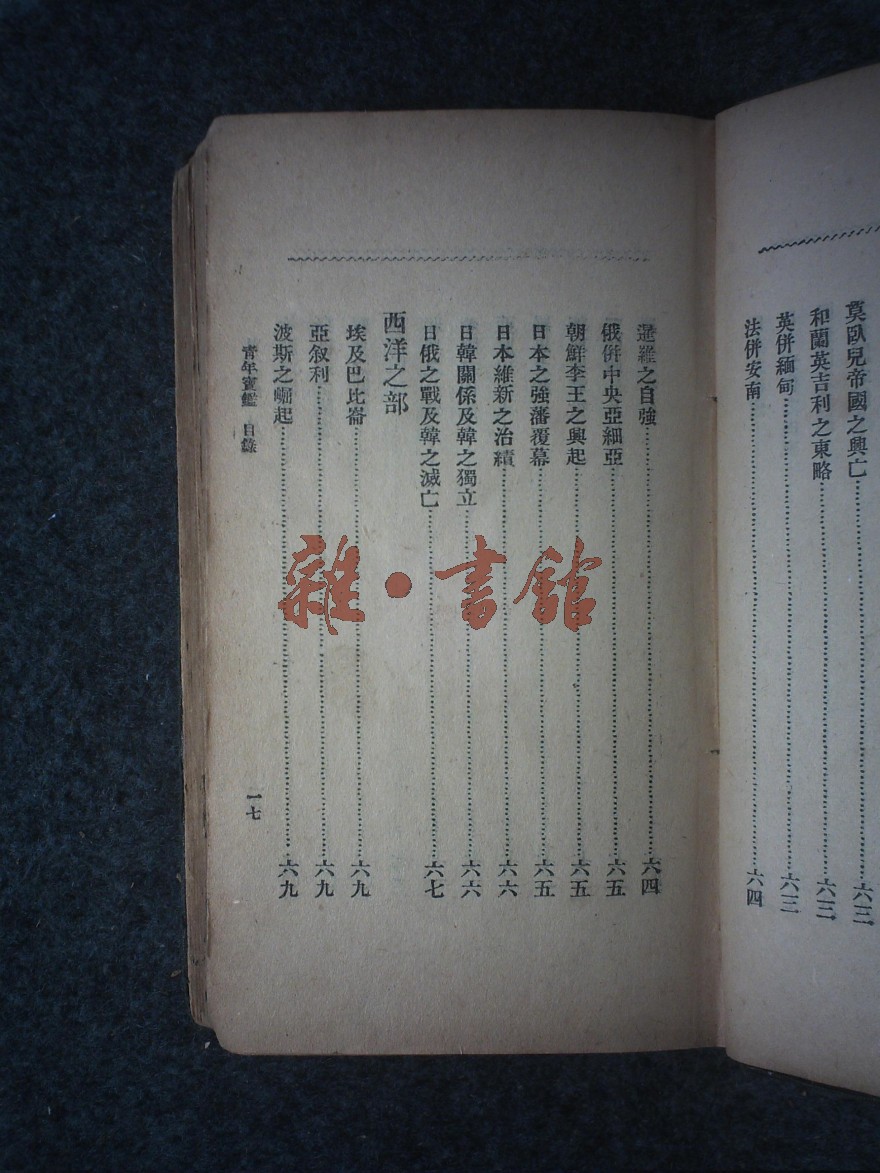 莫臥兒帝國之興亡……六三
和蘭英吉利之東略……六三
英併緬甸……六三
法併安南……六四
暹羅之自強……六四
俄併中央亞細亞……六五
朝鮮李王之興起……六五
日本之強藩覆幕……六五
日本維新之治績……六六
日韓關係及韓之獨立……六六
日俄之戰及韓之滅亡……六七
西洋之部
埃及巴比崙……六九
亞敘利……六九
波斯之崛起……六九
青年寶鑑 目錄
一七
雜·書館